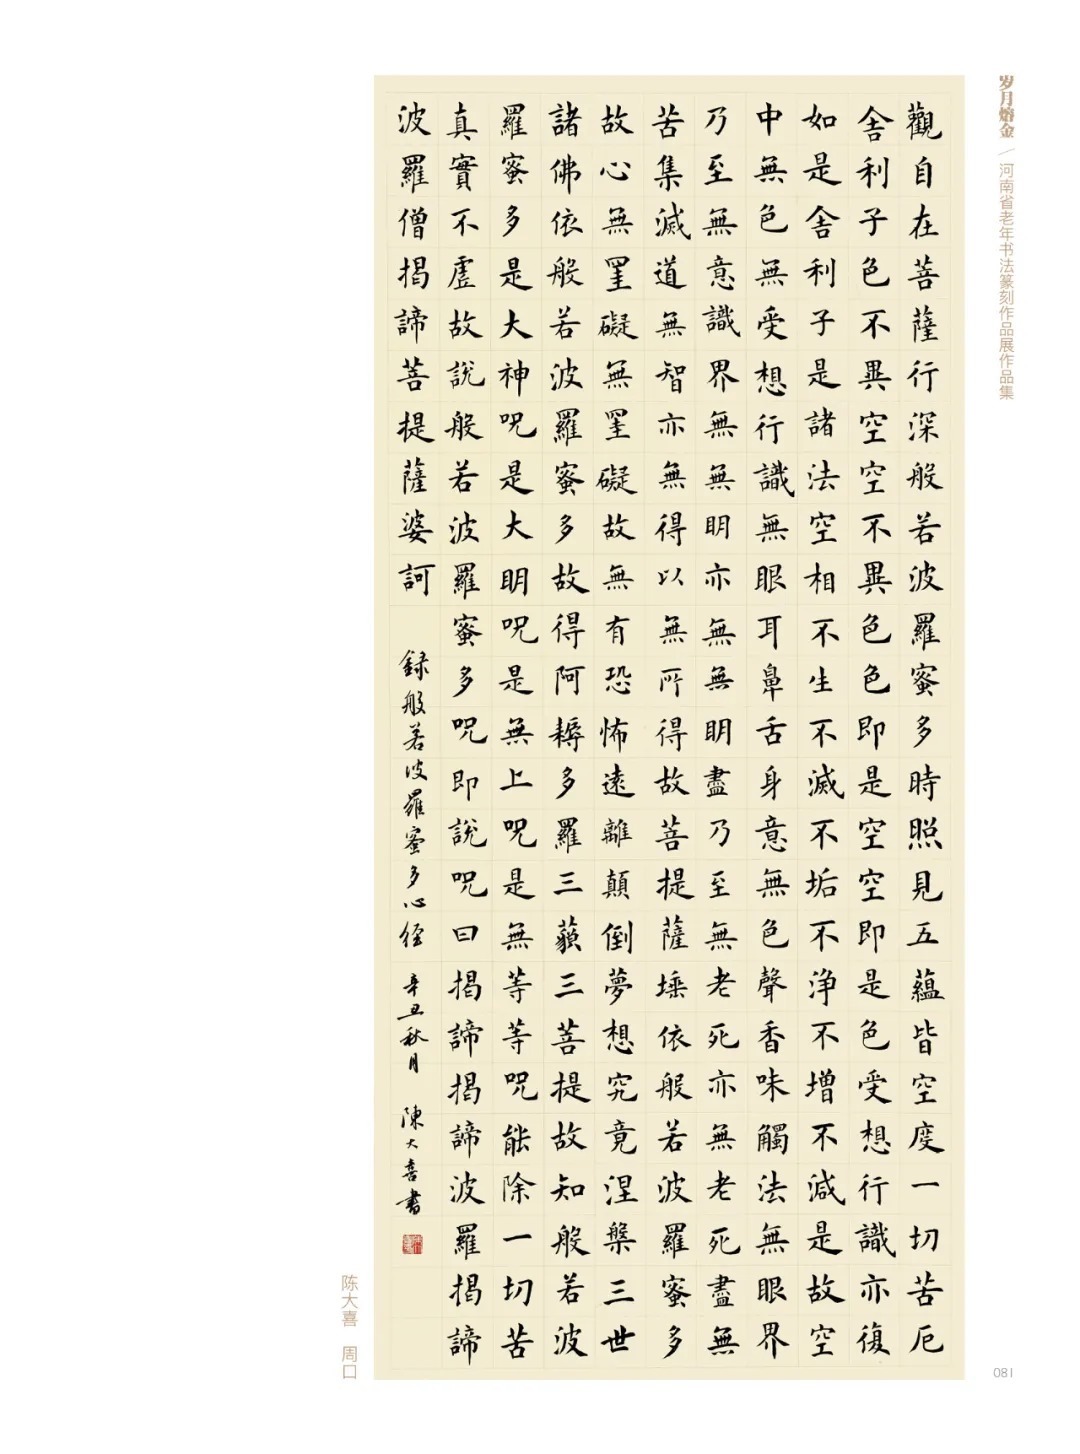 岁月熔金 / 河南省老年书法篆刻作品展作品集
觀自在菩薩行深般若波羅蜜多時照見五蘊皆空度一切苦厄
舍利子色不異空空不異色色即是空空即是色受想行識亦復
如是舍利子是諸法空相不生不滅不垢不浄不增不減是故空
中無色無受想行識無眼耳鼻舌身意無色聲香味觸法無眼界
乃至無意識界無無明亦無無明盡乃至無老死亦無老死盡無
苦集滅道無智亦無得以無所得故菩提薩埵依般若波羅蜜多
故心無罣礙無罣礙故無有恐怖遠離顛倒夢想究竟涅槃三世
諸佛依般若波羅蜜多故得阿耨多羅三藐三菩提故知般若波
羅蜜多是大神呪是大明呪是無上呪是無等等呪能除一切苦
真實不虛故說般若波羅蜜多呪即說呪曰揭諦揭諦波羅揭諦
波羅僧揭諦菩提薩婆訶
録般若波羅蜜多心径 辛丑秋月 陳大喜書
陈大喜 周口
081